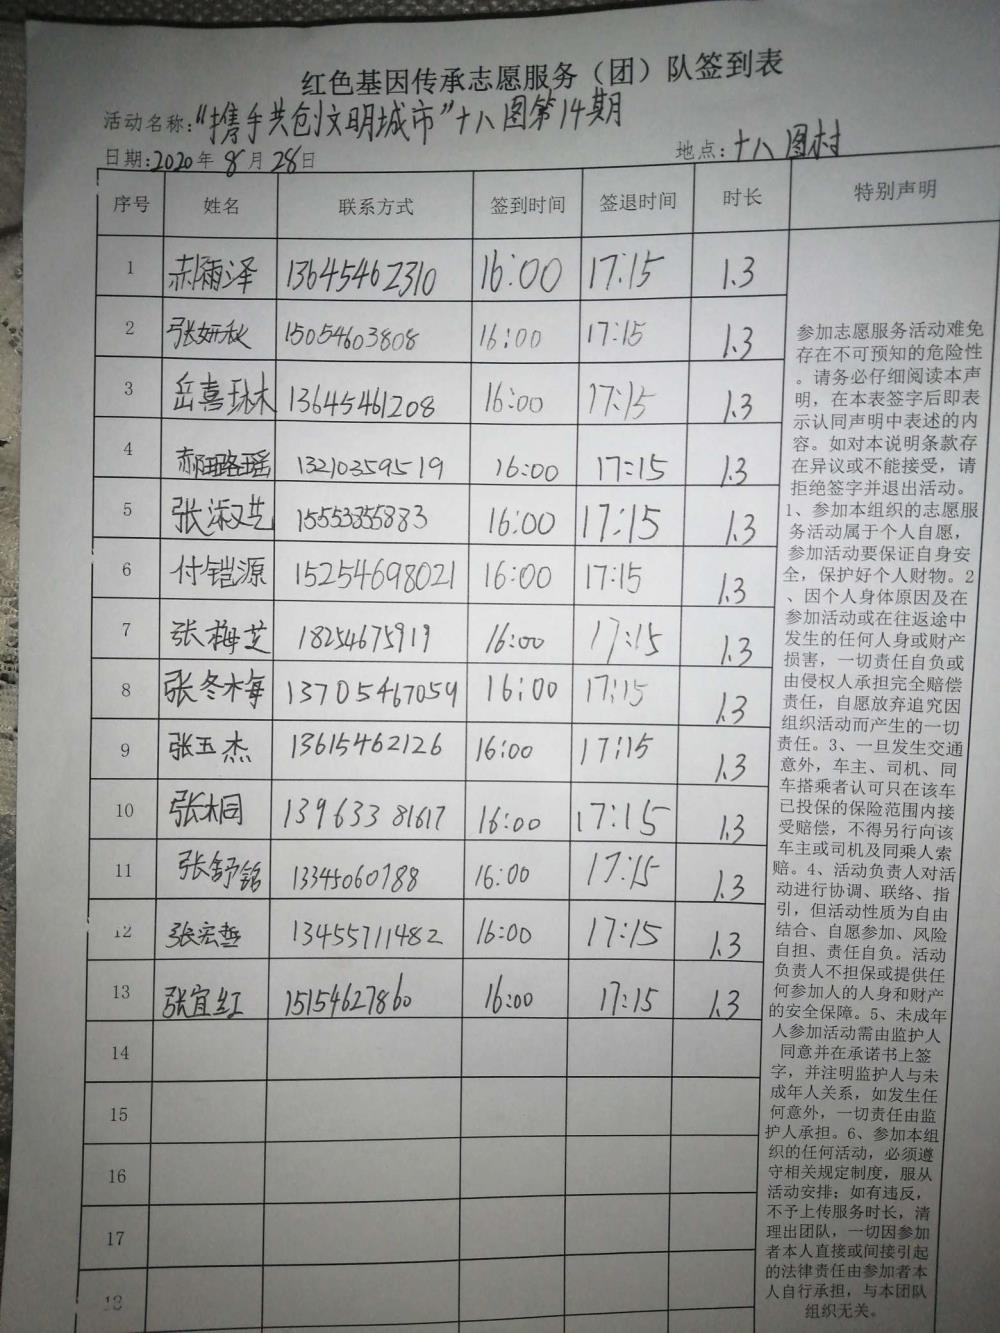 红色基因传承志愿服务（团）队签到表
活动名称:“携手共创文明城市”十八图第14期
日期:2020年8月28日 地点:十八图村
序号 姓名 联系方式 签到时间 签退时间 时长 特别声明
1 郝雨泽 13645462310 16:00 17:15 1.3
2 张妍秋 15054603808 16:00 17:15 1.3
3 岳喜琳 13645461208 16:00 17:15 1.3
4 郝璐瑶 13210359519 16:00 17:15 1.3
5 张淑芝 15553355883 16:00 17:15 1.3
6 付铠源 15254698021 16:00 17:15 1.3
7 张梅芝 18254675919 16:00 17:15 1.3
8 张冬梅 13705467059 16:00 17:15 1.3
9 张五杰 13615462126 16:00 17:15 1.3
10 张桐 13963381617 16:00 17:15 1.3
11 张舒铭 13345060788 16:00 17:15 1.3
12 张宏哲 13455711482 16:00 17:15 1.3
13 张宜红 15154627860 16:00 17:15 1.3
14
15
16
17
18
参加志愿服务活动难免
存在不可预知的危险性
。请务必仔细阅读本声
明，在本表签字后即表
示认同声明中表述的内
容。如对本说明条款存
在异议或不能接受，请
拒绝签字并退出活动。
1、参加本组织的志愿服
务活动属于个人自愿，
参加活动要保证自身安
全，保护好个人财物。2
、因个人身体原因及在
参加活动或在往返途中
发生的任何人身或财产
损害，一切责任自负或
由侵权人承担完全赔偿
责任，自愿放弃追究因
组织活动而产生的一切
责任。3、一旦发生交通
意外，车主、司机、同
车搭乘者认可只在该车
已投保的保险范围内接
受赔偿，不得另行向该
车主或司机及同乘人索
赔。4、活动负责人对活
动进行协调、联络、指
引，但活动性质为自由
结合、自愿参加、风险
自担、责任自负。活动
负责人不担保或提供任
何参加人的人身和财产
的安全保障。5、未成年
人参加活动需由监护人
同意并在承诺书上签
字，并注明监护人与未
成年人关系，如发生任
何意外，一切责任由监
护人承担。6、参加本组
织的任何活动，必须遵
守相关规定制度，服从
活动安排；如有违反，
不予上传服务时长，清
理出团队，一切因参加
者本人直接或间接引起
的法律责任由参加者本
人自行承担，与本团队
组织无关。